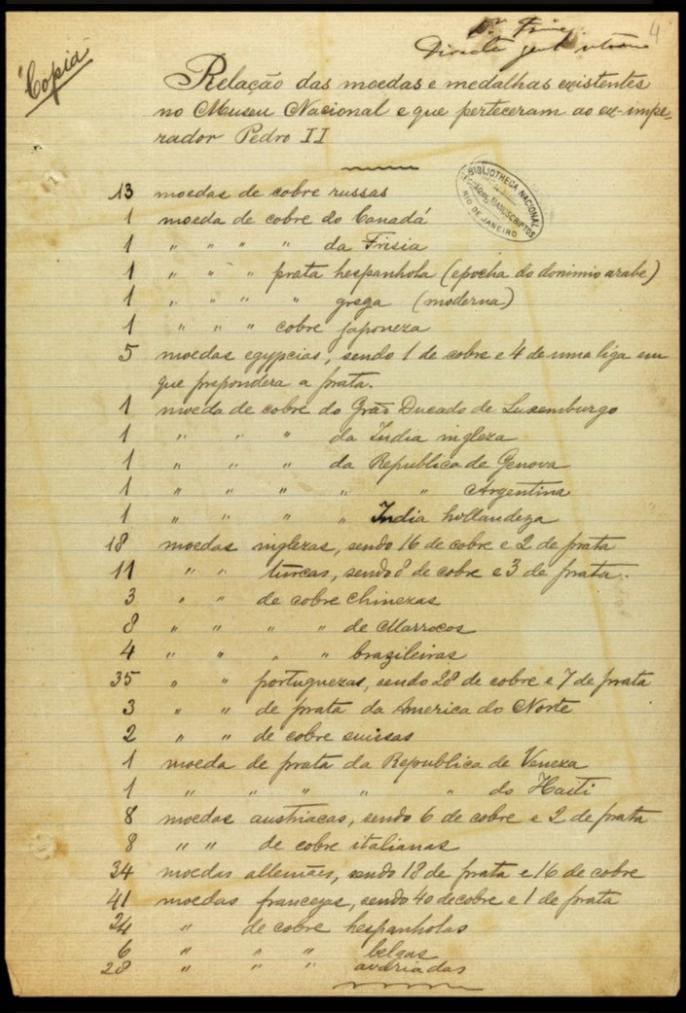 4
Copia
Relação das moedas e medalhas existentes
no Museu Nacional e que perteceram ao ex-impe-
rador Pedro II
BIBLIOTHECA NACIONAL
MANUSCRIPTOS
RIO DE JANEIRO
13 moedas de cobre russas
1 moeda de cobre do Canadá
1 " " " " da Frisia
1 " " " prata hespanhola (epocha do dominio arabe)
1 " " " " grega (moderna)
1 " " " cobre japoneza
5 moedas egypcias, sendo 1 de cobre e 4 de uma liga em
que prepondera a prata.
1 moeda de cobre do Grão Ducado de Luxemburgo
1 " " " da India ingleza
1 " " " da Republica de Genova
1 " " " " " Argentina
1 " " " " India hollandeza
18 moedas inglezas, sendo 16 de cobre e 2 de prata
11 " " turcas, sendo 8 de cobre e 3 de prata.
3 " " de cobre chinezas
8 " " " " de Marrocos
4 " " " " brazileiras
35 " " portuguezas, sendo 28 de cobre e 7 de prata
3 " " de prata da America do Norte
2 " " de cobre suissas
1 moeda de prata da Republica de Veneza
1 " " " " " do Haiti
8 moedas austriacas, sendo 6 de cobre e 2 de prata
8 " " de cobre italianas
34 moedas allemães, sendo 18 de prata e 16 de cobre
41 moedas francezas, sendo 40 de cobre e 1 de prata
24 " de cobre hespanholas
6 " " " belgas
28 " " " avariadas